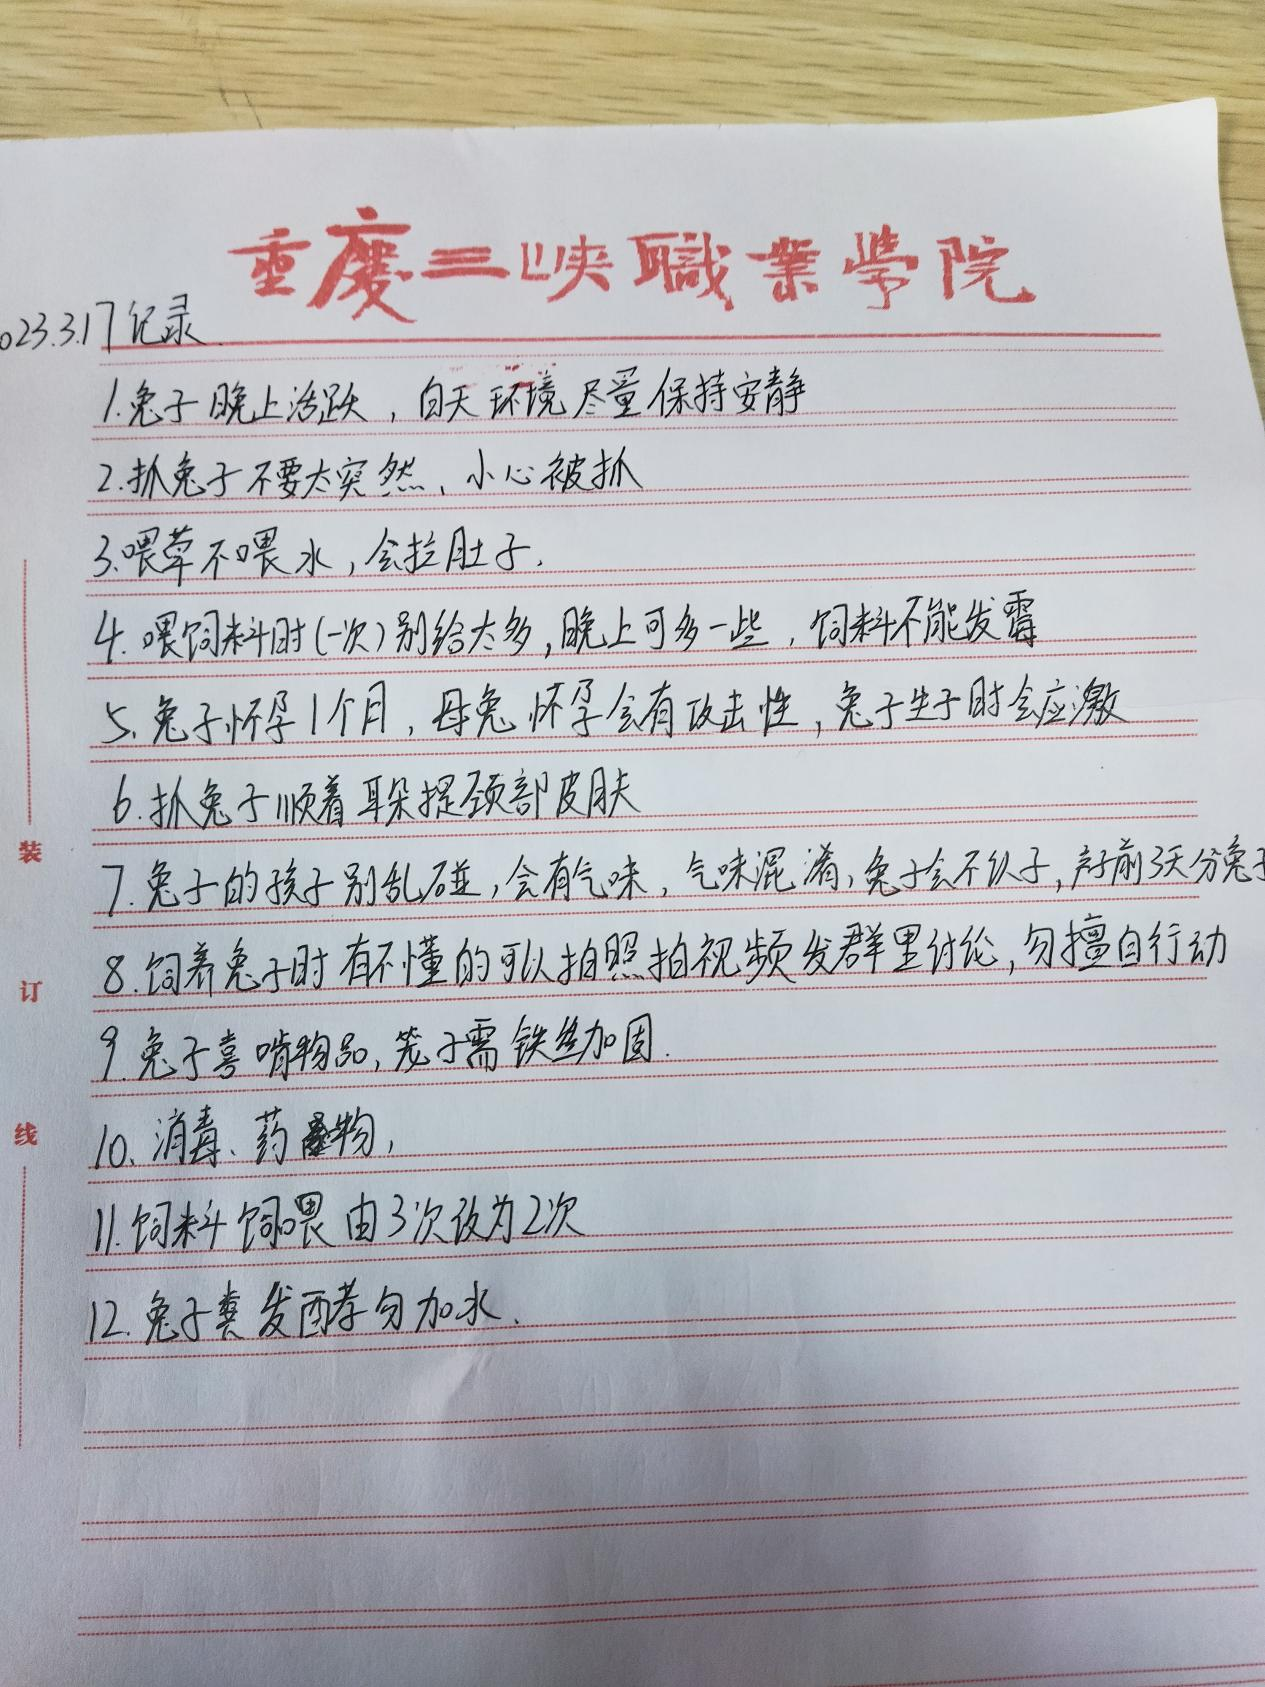 重慶三峡職業學院
023.3.17记录.
1.兔子晚上活跃，白天环境尽量保持安静
2.抓兔子不要太突然、小心被抓
3.喂草不喂水，会拉肚子.
4.喂饲料时(一次)别给太多,晚上可多一些，饲料不能发霉
5.兔子怀孕1个月，母兔怀孕会有攻击性，兔子生子时会应激
6.抓兔子顺着耳朵提颈部皮肤
7.兔子的孩子别乱碰，会有气味，气味混淆，兔子会不认子，产前3天分兔子
8.饲养兔子时有不懂的可以拍照拍视频发群里讨论，勿擅自行动
9.兔子喜啃物品，笼子需铁丝加固.
10、消毒、药物，
11.饲料饲喂由3次改为2次
12.兔子粪发酵勿加水.
装
订
线